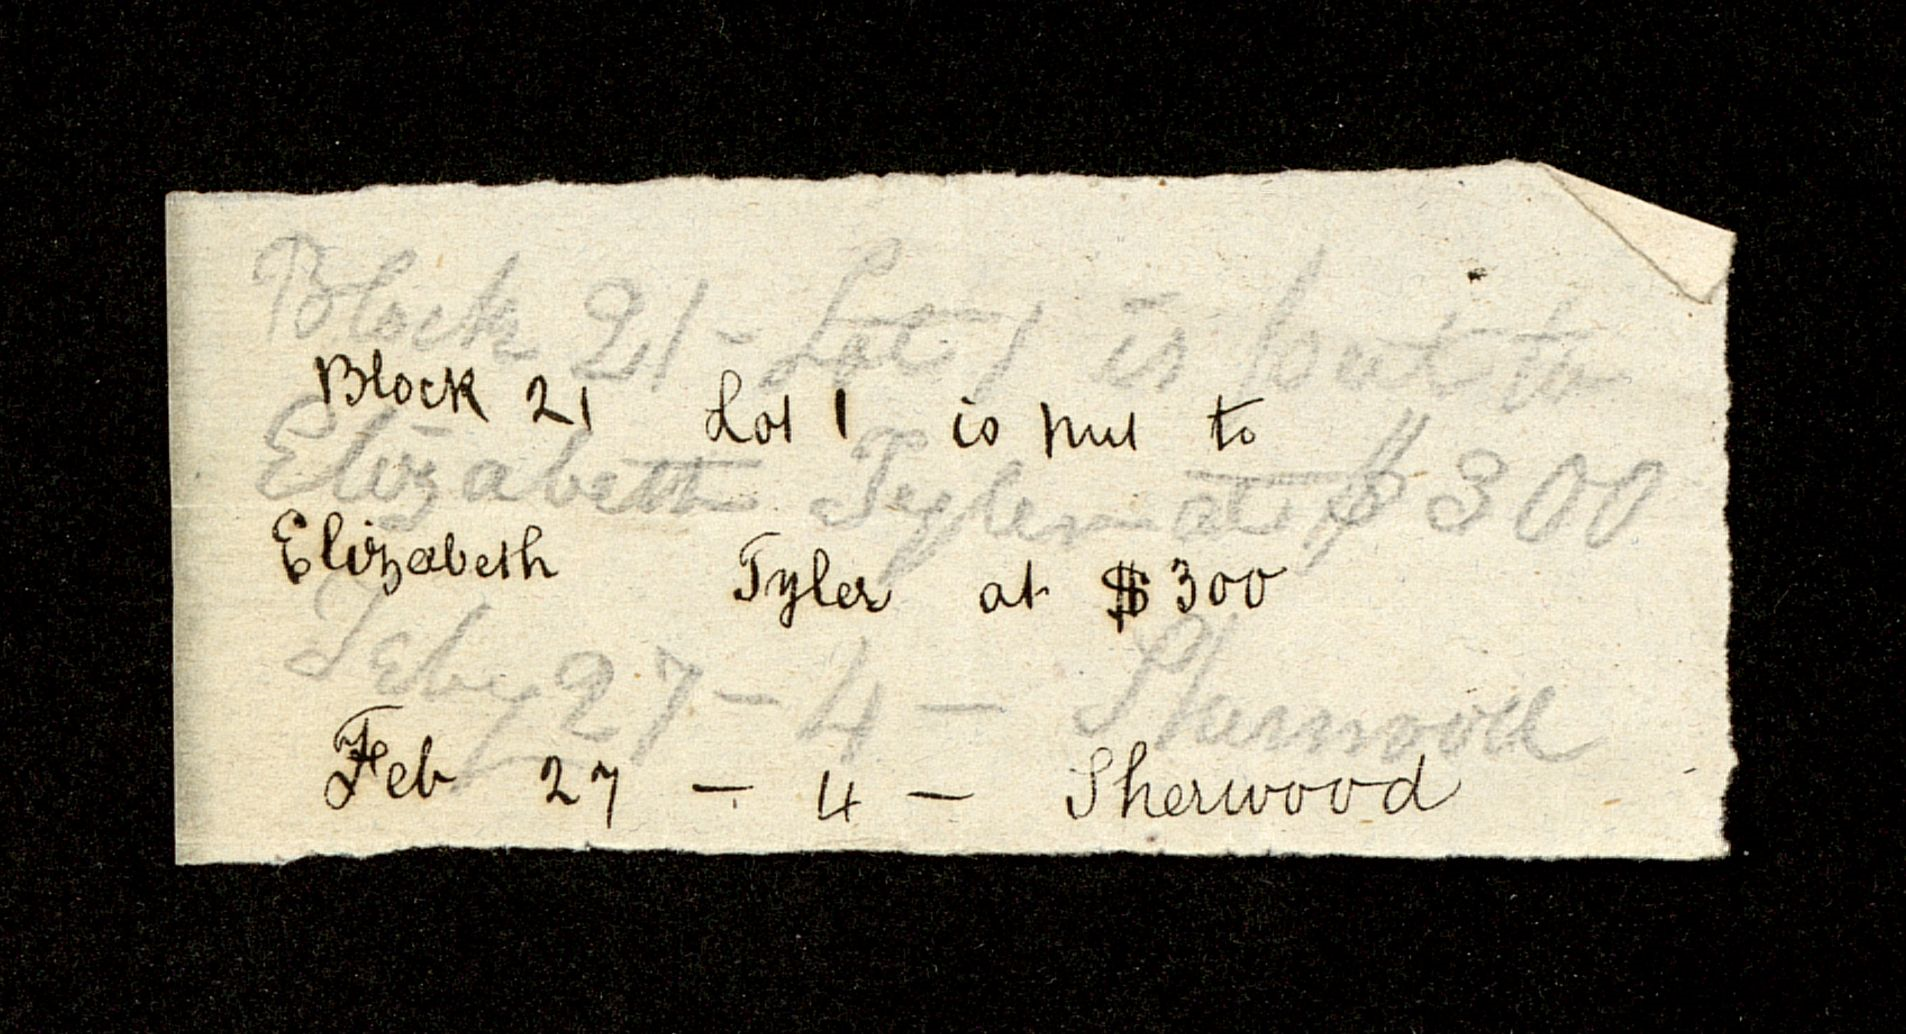 Block 21 - Lot 1 is put to
Block 21 Lot 1 is put to
Elizabeth Tyler at $300
Elizabeth Tyler at $300
Feby 27 - 4 - Sherwood
Feb 27 - 4 - Sherwood